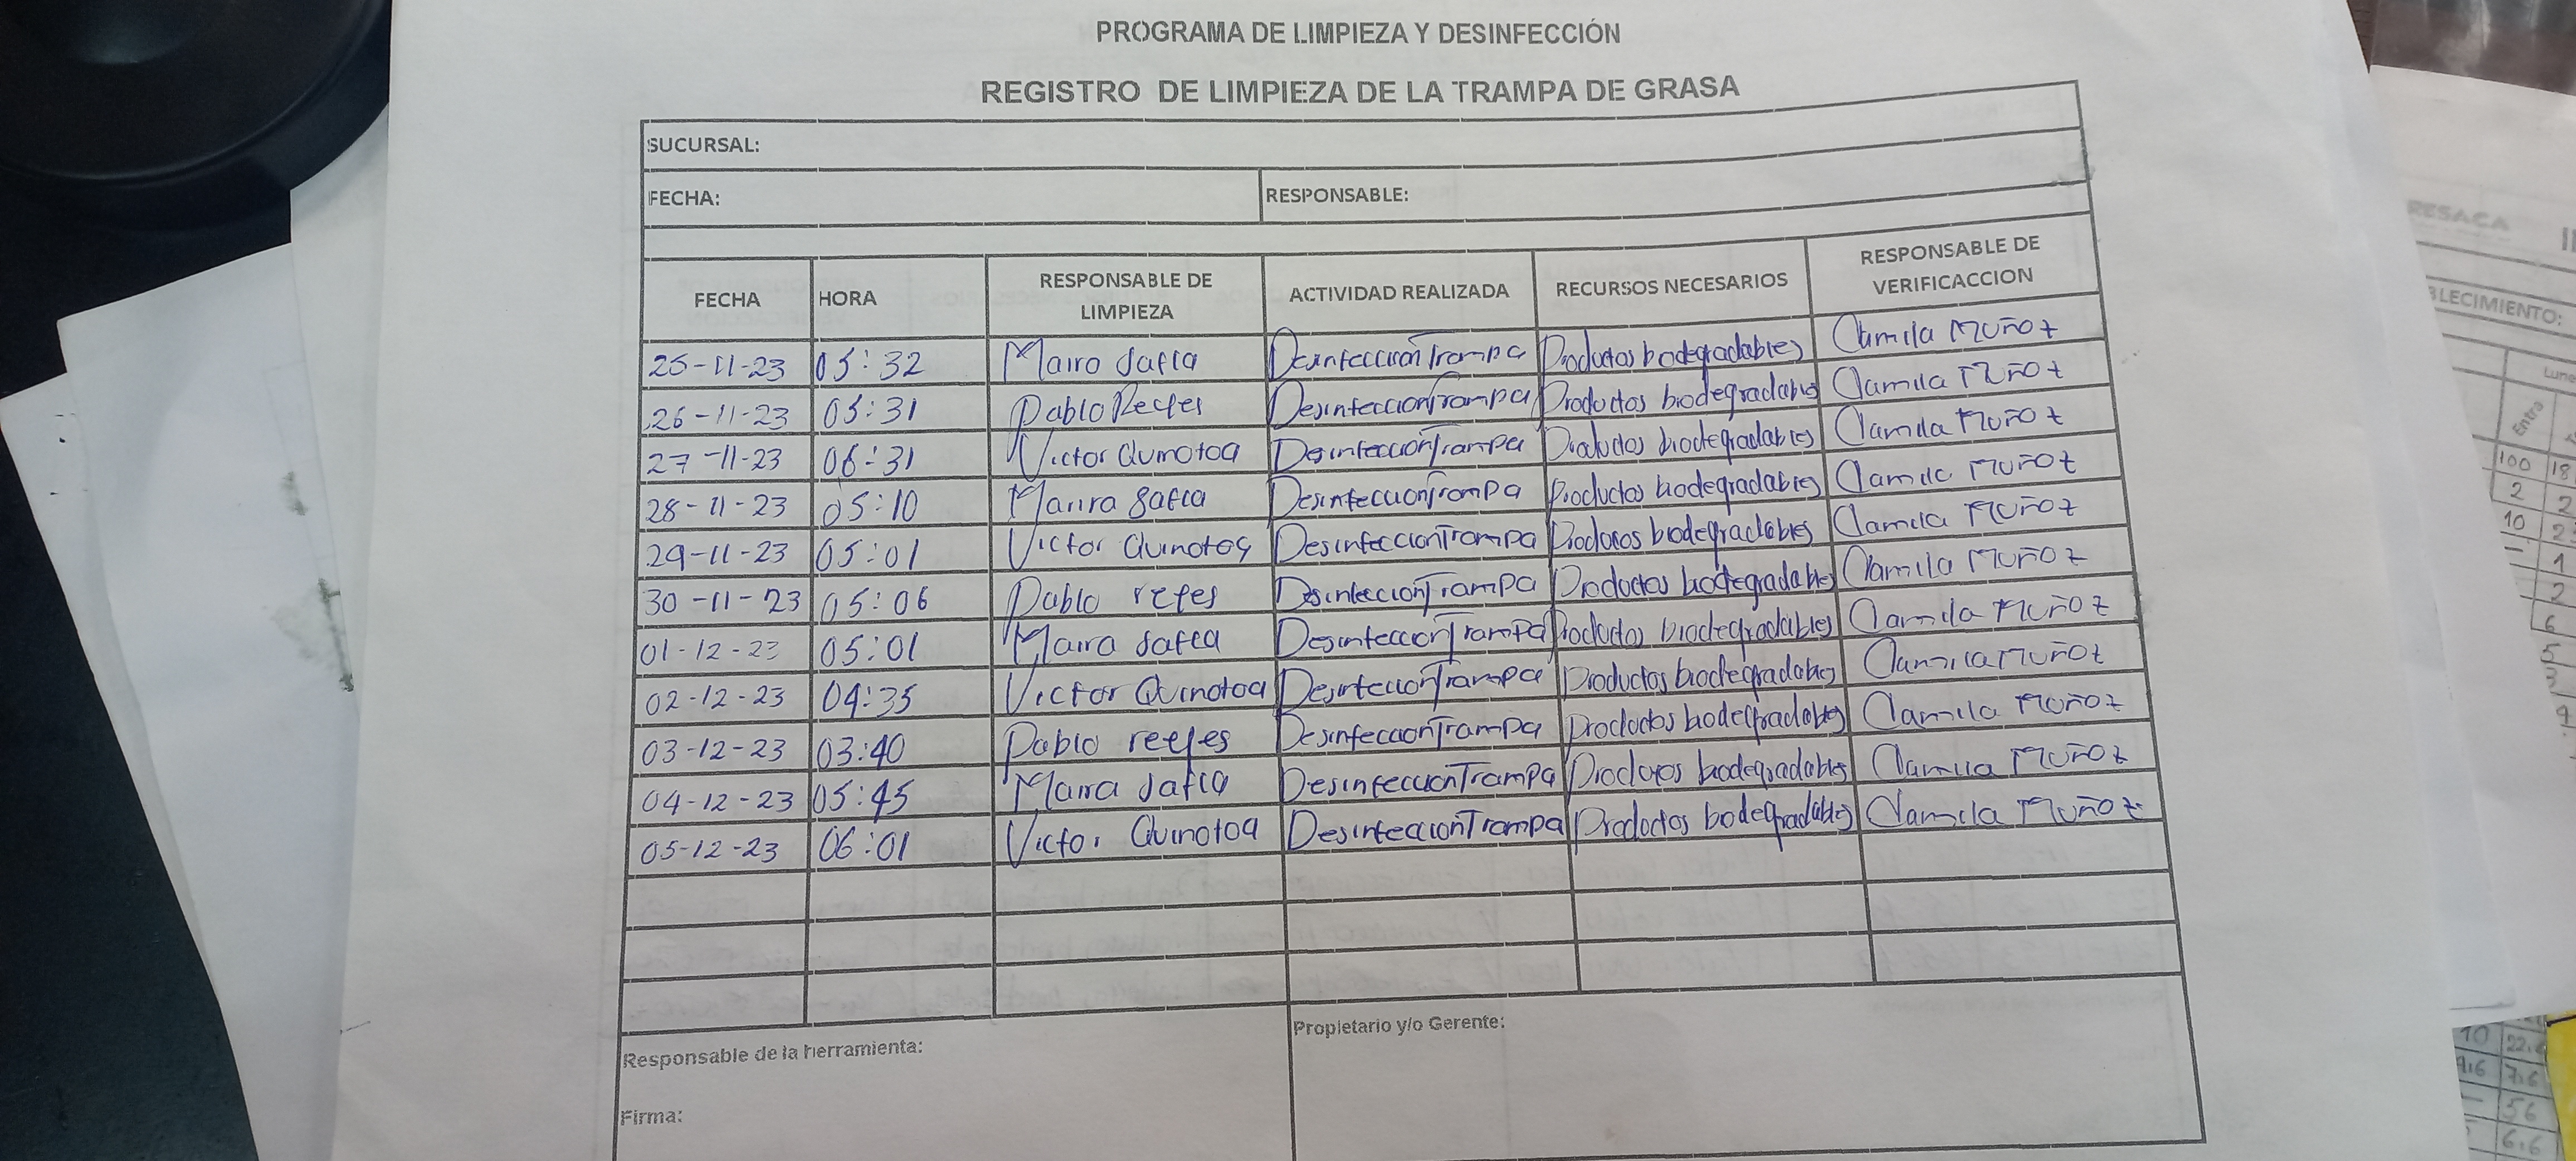 PROGRAMA DE LIMPIEZA Y DESINFECCIÓN
REGISTRO DE LIMPIEZA DE LA TRAMPA DE GRASA
SUCURSAL:
FECHA: RESPONSABLE:
FECHA HORA RESPONSABLE DE LIMPIEZA ACTIVIDAD REALIZADA RECURSOS NECESARIOS RESPONSABLE DE VERIFICACCION
25-11-23 05:32 Mairo Desinfeccion Trampa Productos biodegradables Camila MUÑOZ
26-11-23 05:31 Pablo Reyes Desinfeccion Trampa Productos biodegradables Camila MUÑOZ
27-11-23 06:31 Victor Quinotoa Desinfeccion Trampa Productos biodegradables Camila MUÑOZ
28-11-23 05:10 Desinfeccion Trampa Productos biodegradables Camila MUÑOZ
29-11-23 05:01 Victor Quinotoa Desinfeccion Trampa Productos biodegradables Camila MUÑOZ
30-11-23 05:06 Pablo reyes Desinfeccion Trampa Productos biodegradables Camila MUÑOZ
01-12-23 05:01 Maira Desinfeccion Trampa Productos biodegradables Camila MUÑOZ
02-12-23 04:35 Victor Quinotoa Desinfeccion Trampa Productos biodegradables Camila MUÑOZ
03-12-23 03:40 Pablo reyes Desinfeccion Trampa Productos biodegradables Camila MUÑOZ
04-12-23 05:45 Maira Desinfeccion Trampa Productos biodegradables Camila MUÑOZ
05-12-23 06:01 Victor Quinotoa Desinfeccion Trampa Productos biodegradables Camila MUÑOZ
Responsable de la herramienta: Propietario y/o Gerente:
Firma:
RESACA
LECIMIENTO:
Entra
100 18
2 2
10
1
2
6
5
3
10 22.
7.6
56
6.6